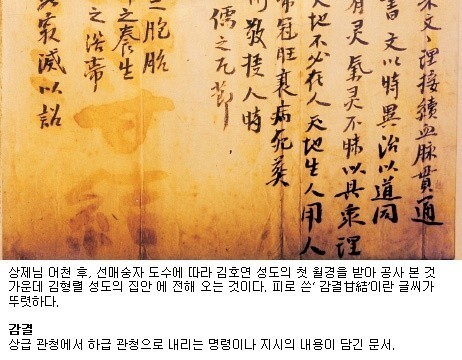 文理接續血脉貫通
書文以時異治以道同
有灵氣灵不昧以具衆理
天地不必在人天地生人用人
帝冠旺衰病死葬
敬授人時
儒之凡節
之胞胎
之養生
之浴帝
寂滅以詔
甘結
상제님 어천 후, 선매숭자 도수에 따라 김호연 성도의 첫 월경을 받아 공사 본 것
가운데 김형렬 성도의 집안 에 전해 오는 것이다. 피로 쓴‘ 감결甘結’이란 글씨가
뚜렷하다.
감결
상급 관청에서 하급 관청으로 내리는 명령이나 지시의 내용이 담긴 문서.